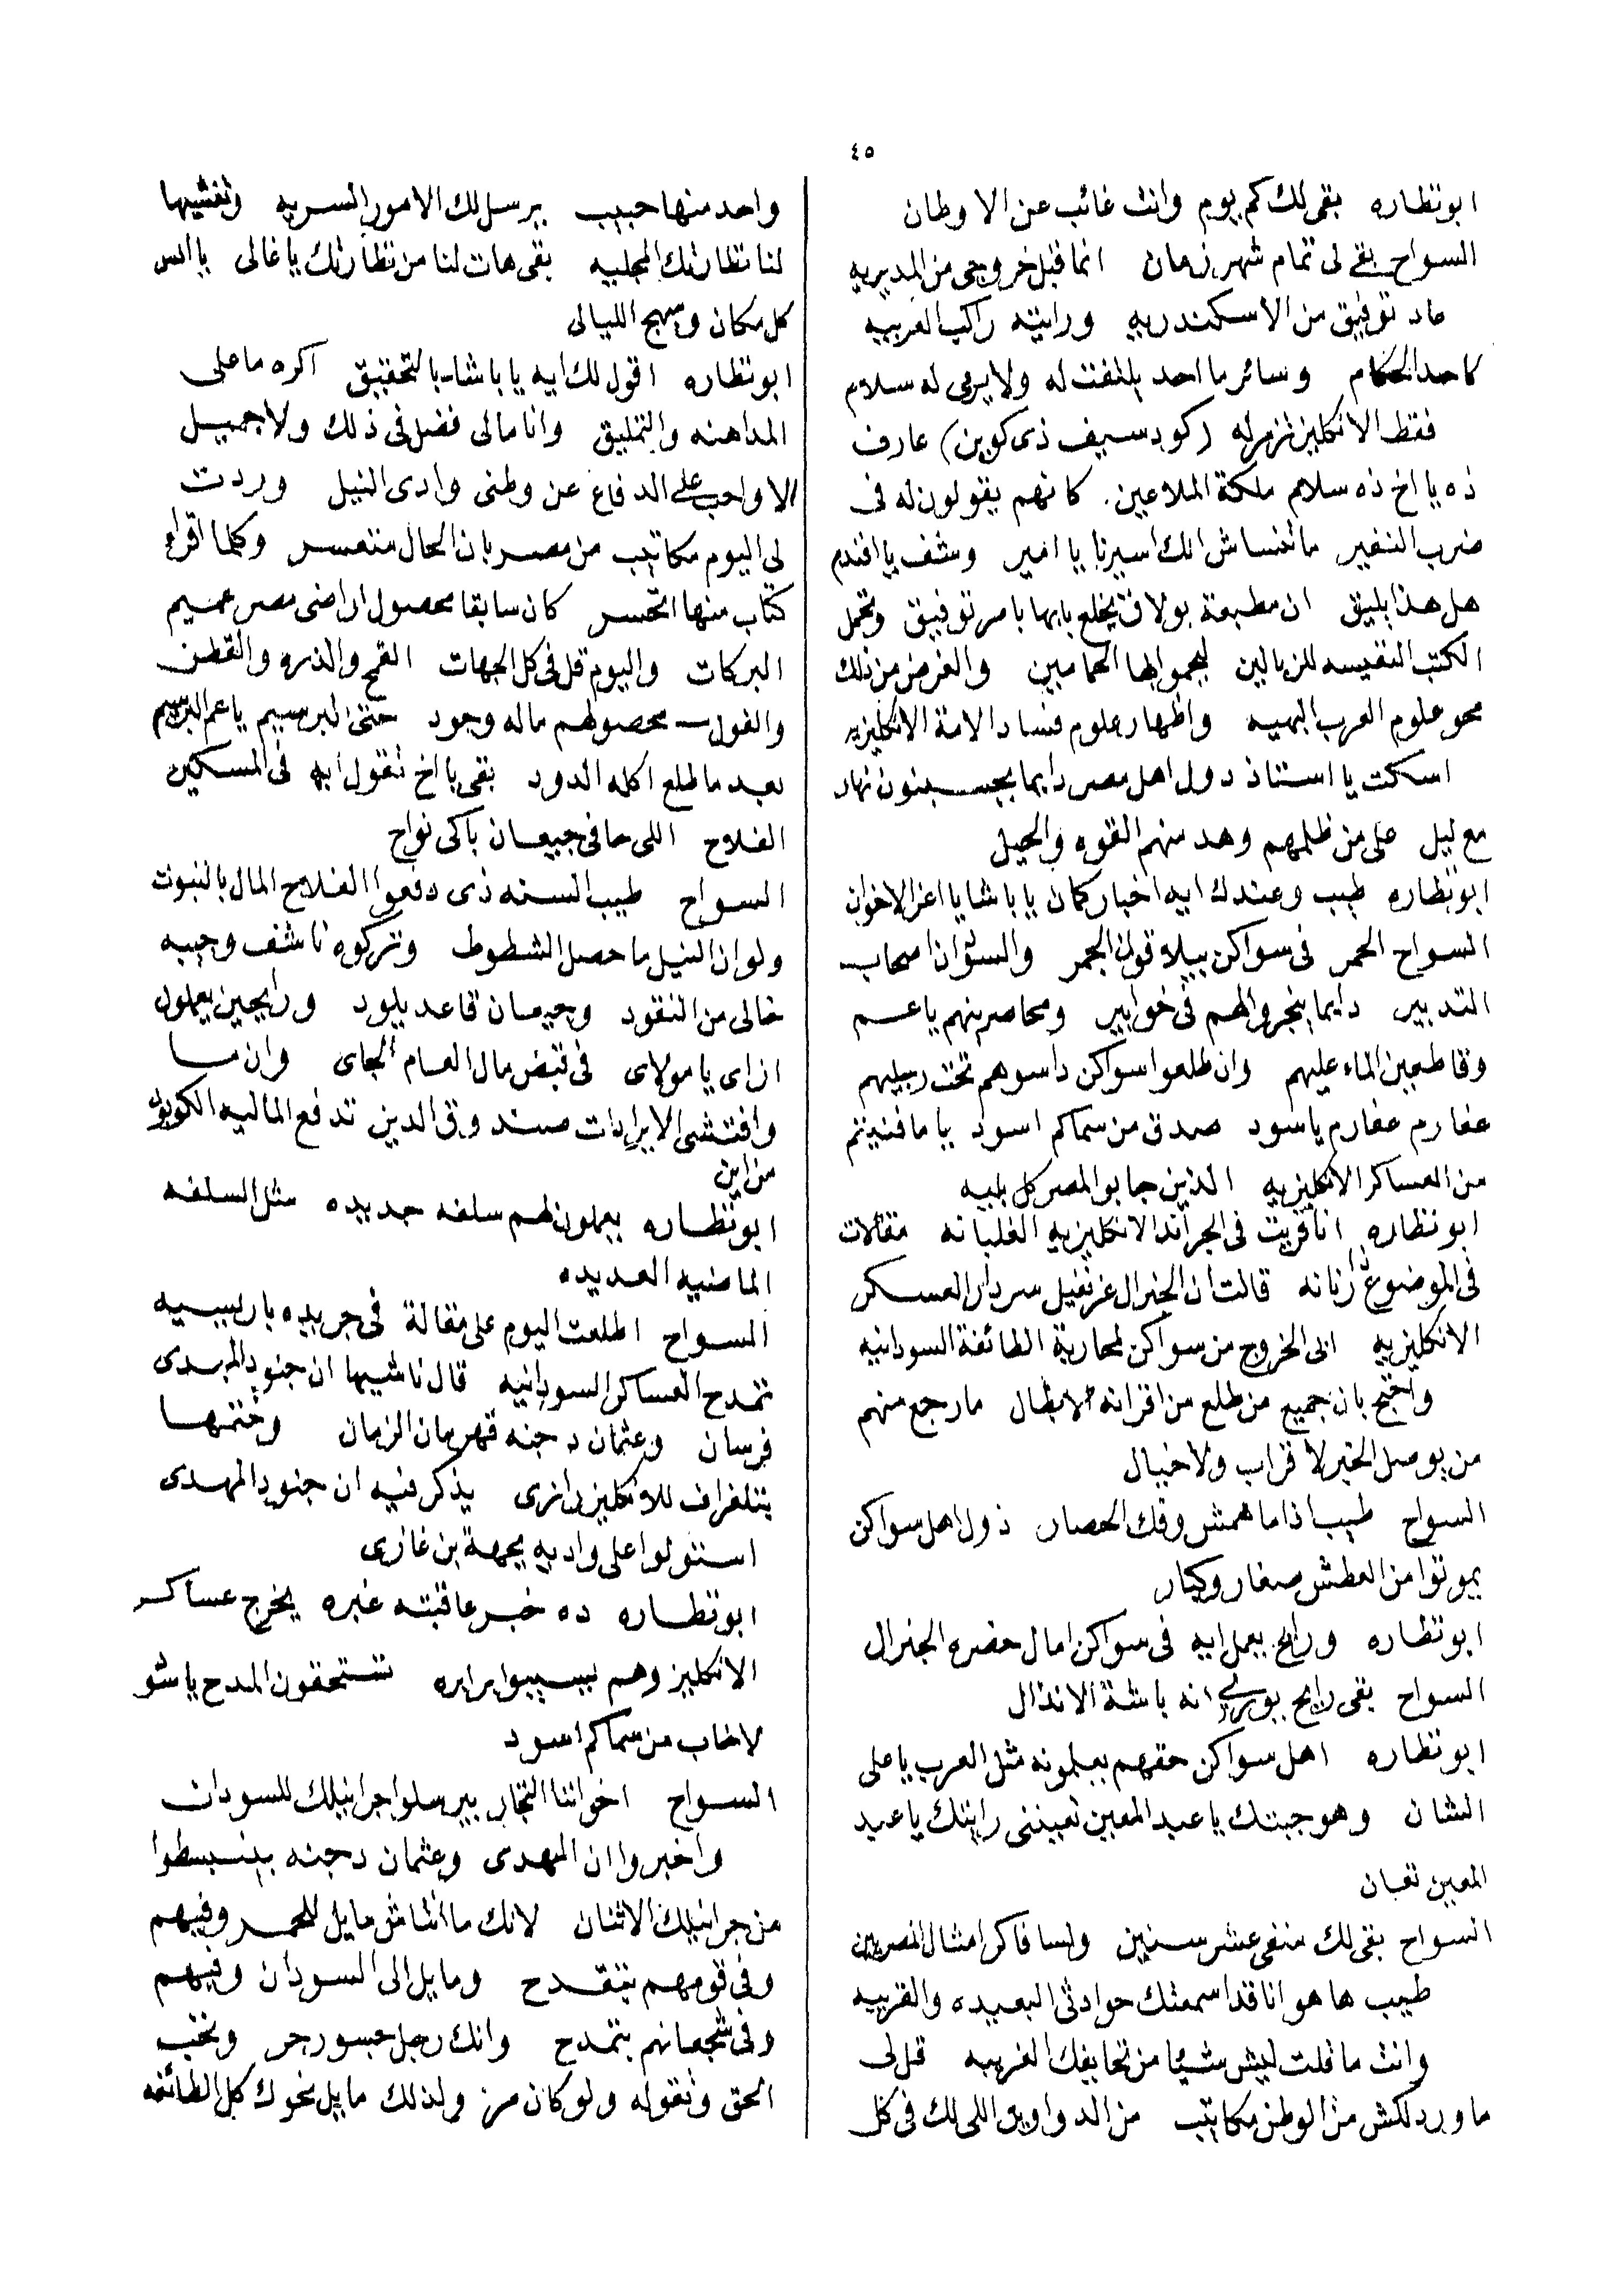 ٤٥
ابو نظاره بقى لك كم يوم وانت غائب عن الاوطان
السواح بقى لى تمام شهر زمان انما قبل خروجى من المديريه
عاد توفيق من الاسكندريه ورايته راكب العربيه
كاحد الحكام وسائر ما احد يلتفت له ولا يرمى له سلام
فقط الانكليز تزمر له (كود سيف ذى كوين) عارف
ذه يا اخ ذه سلام ملكة الملاعين. كانهم يقولون له فى
ضرب النفير ماتنساش انك اسيرنا يا امير وشف يا افندم
هل هذا يليق ان مطبعة بولاق يخلع بابها بامر توفيق وتحمل
الكتب النفيسه للزبالين ليحموا بها الحمامين والغرض من ذلك
محو علوم العرب البهيه واظهار علوم فساد الامة الانكليزيه
اسكت يا استاذ دول اهل مصر دايما بحسبنون نهار
مع ليل على من ظلمهم وهد منهم القوه والحيل
ابو نظاره طيب وعندك ايه اخبار كمان يا باشا يا اعز الاخوان
السواح الحمر فى سواكن بيلاقون الجمر والسودان اصحاب
التدبير دايما ينجروا لهم فى خوابير ومحاصرينهم يا عم
وقاطعين الماء عليهم وان طلعوا سواكن داسوهم تحت رجليهم
عفارم عفارم يا سود صدق من سماكم اسود ياما فنيتم
من العساكر الانكليزيه الذين جابو المصر كل بليه
ابو نظاره انا قريت فى الجرائد الانكليزيه الغلبانه مقالات
فى الموضوع رنانه قالت ان الجنرال غرنفيل سردار العسكر
الانكليزيه ابى الخروج من سواكن لمحاربة الطائفة السودانيه
واحتج بان جميع من طلع من اقرانه الابطال ما رجع منهم
من يوصل الخبر لا قراب ولا خيال
السواح طيب اذا ما همش وفك الحصار ذول اهل سواكن
يموتوا من العطش صغار وكبار
ابو نظاره ورايح يعمل ايه فى سواكن امال حضره الجنرال
السواح بقى رايح يورى انه باشة الانذال
ابو نظاره اهل سواكن حقهم يعملونه مثل العرب يا على
الشان وهو جبتك يا عبد المعين تعيننى رايتك يا عبد
المعين تعبان
السواح بقى لك منفى عشر سنين ولسا فاكر امثال المصريين
طيب ها هو انا قد اسمعتك حوادثى البعيده والقريبه
وانت ما قلت ليش شيئا من تحايفك الغريبه قل لى
ما ورد لكش من الوطن مكاتيب من الدواوين اللى لك فى كل
واحد منها حبيب يرسل لك الامور السريه وتفشيها
لنا نظارتك المجلبيه بقى هات لنا من نظارتك يا غالى يا انس
كل مكان ومبهج الليالى
ابو نظاره اقول لك ايه يا باشا بالتحقيق اكره ما على
المداهنه والتمليق وانا مالى فضل فى ذلك ولا جميل
الا واجب على الدفاع عن وطنى وادى النيل وردت
لى اليوم مكاتيب من مصر بان الحال متعسر وكلما اقراء
كتاب منها اتحسر كان سابقا محصول اراضى مصر عميم
البركات واليوم قل فى كل الجهات القمح والذره والقطن
والفول محصولهم ماله وجود حتى البرسيم يا عم البرسيم
بعد ما طلع اكله الدود بقى يا اخ تقول ايه فى المسكين
الفلاح اللى حافى جيعان باكى نواح
السواح طيب السنه ذى دفعوا الفلاح المال بالنبوت
ولو ان النيل ما حصل الشطوط وتركوه ناشف وجيبه
خالى من النقود وجيعان قاعد يلود ورايحين يعملون
ازاى يا مولاى فى قبض مال العام الجاى وان ما
وافتشى الايرادات صندوق الدين تدفع الماليه الكوبون
من اين
ابو نظاره يعملون لهم سلفه جديده مثل السلفه
الماضيه العديده
السواح اطلعت اليوم على مقالة فى جريده باريسيه
تمدح العساكر السودانيه قال ناشيها ان جنود المهدى
فرسان وعثمان دجنه قهرمان الزمان وختمها
بتلغراف للانكليز رازى يذكر فيه ان جنود المهدى
استولوا على واديه بجهة بن غازى
ابو نظاره ده خبر عاقبته عبره يخرج عساكر
الانكليز وهم بيسيبوا برابره تستحقون المدح يا شو
لاخاب من سماكم اسود
السواح اخواتنا التجار بيرسلوا جرانيلك للسودان
واخبروا ان المهدى وعثمان دجنه بينبسطوا
من جرانيلك الاثنان لانك ما انتاش مايل للحمر وفيهم
وفى قومهم بتقدح ومايل الى السودان وفيهم
وفى شجعانهم بتمدح وانك رجل جسور حر وتحب
الحق وتقوله ولو كان مر ولذلك مايل نحوك كل الطائفه